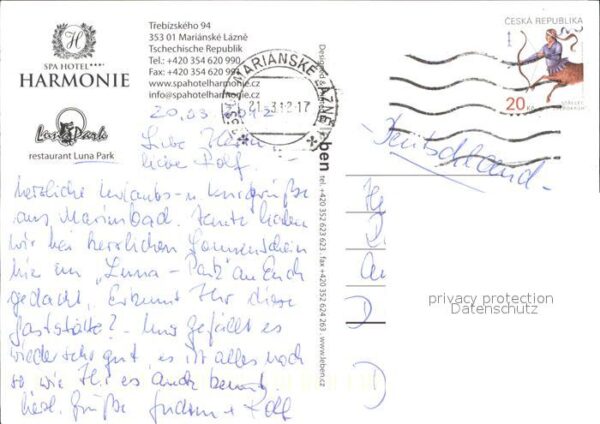 SPA HOTEL****
HARMONIE
Luna Park
restaurant Luna Park
Třebízského 94
353 01 Mariánské Lázně
Tschechische Republik
Tel.: +420 354 620 990
Fax: +420 354 620 994
www.spahotelharmonie.cz
info@spahotelharmonie.cz
MARIÁNSKÉ LÁZNĚ
ČESKÁ REPUBLIKA
20 Kč
20.03.
Liebe
lieber Rolf.
herzliche Urlaubs- u. Kurgrüße
aus Marienbad. Heute haben
wir bei herrlichem Sonnenschein
hier im "Luna-Park" an Euch
gedacht. Erkennt Ihr diese
Gaststätte? - Uns gefällt es
wieder sehr gut, es ist alles noch
so wie Ihr es auch kennt.
herzl. Grüße Gudrun + Rolf
tel. +420 352 623 623; fax +420 352 624 263 www.leben.cz
Deutschland-
D
privacy protection
Datenschutz